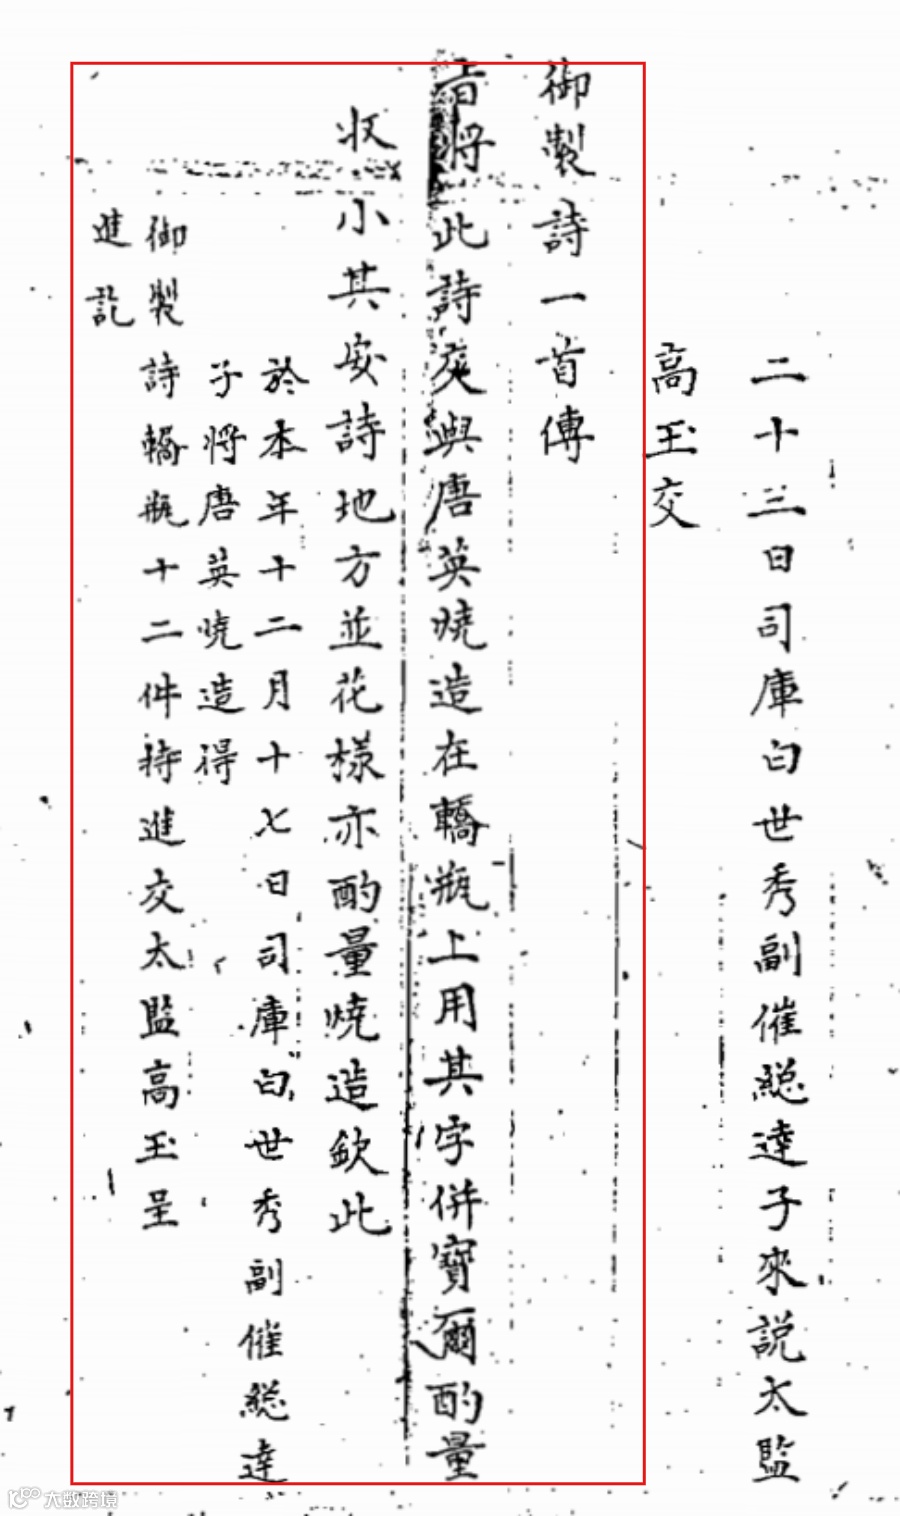 二十三日司庫白世秀副催総達子來說太監
高玉交
御製詩一首傳
旨將此詩交與唐英燒造在轎瓶上用其字併寶爾酌量
收小其安詩地方並花樣亦酌量燒造欽此
於本年十二月十七日司庫白世秀副催総達
子將唐英燒造得
御製詩轎瓶十二件持進交太監高玉呈
進訖
大数跨境